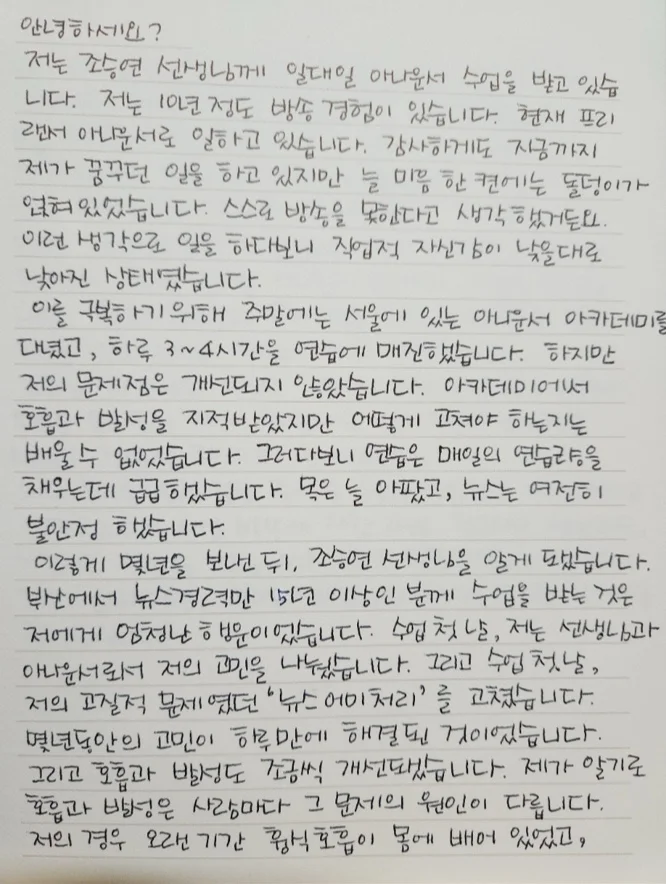 안녕하세요?
저는 조승연 선생님께 일대일 아나운서 수업을 받고 있습
니다. 저는 10년 정도 방송 경험이 있습니다. 현재 프리
랜서 아나운서로 일하고 있습니다. 감사하게도 지금까지
제가 꿈꾸던 일을 하고 있지만 늘 마음 한 켠에는 돌덩이가
얹혀있었습니다. 스스로 방송을 못한다고 생각했거든요.
이런 생각으로 일을 하다보니 직업적 자신감이 낮을대로
낮아진 상태였습니다.
이를 극복하기 위해 주말에는 서울에 있는 아나운서 아카데미를
다녔고, 하루 3~4시간을 연습에 매진했습니다. 하지만
저의 문제점은 개선되지 않았습니다. 아카데미에서
호흡과 발성을 지적받았지만 어떻게 고쳐야 하는지는
배울 수 없었습니다. 그러다보니 연습은 매일의 연습량을
채우는데 급급했습니다. 목은 늘 아팠고, 뉴스는 여전히
불안정 했습니다.
이렇게 몇년을 보낸 뒤, 조승연 선생님을 알게 됐습니다.
부산에서 뉴스경력만 15년 이상인 분께 수업을 받는 것은
저에게 엄청난 행운이었습니다. 수업 첫 날, 저는 선생님과
아나운서로서 저의 고민을 나눴습니다. 그리고 수업 첫날,
저의 고질적 문제였던 '뉴스 어미처리'를 고쳤습니다.
몇년동안의 고민이 하루만에 해결된 것이었습니다.
그리고 호흡과 발성도 조금씩 개선됐습니다. 제가 알기로
호흡과 발성은 사람마다 그 문제의 원인이 다릅니다.
저의 경우 오랜 기간 흉식호흡이 몸에 배어 있었고,